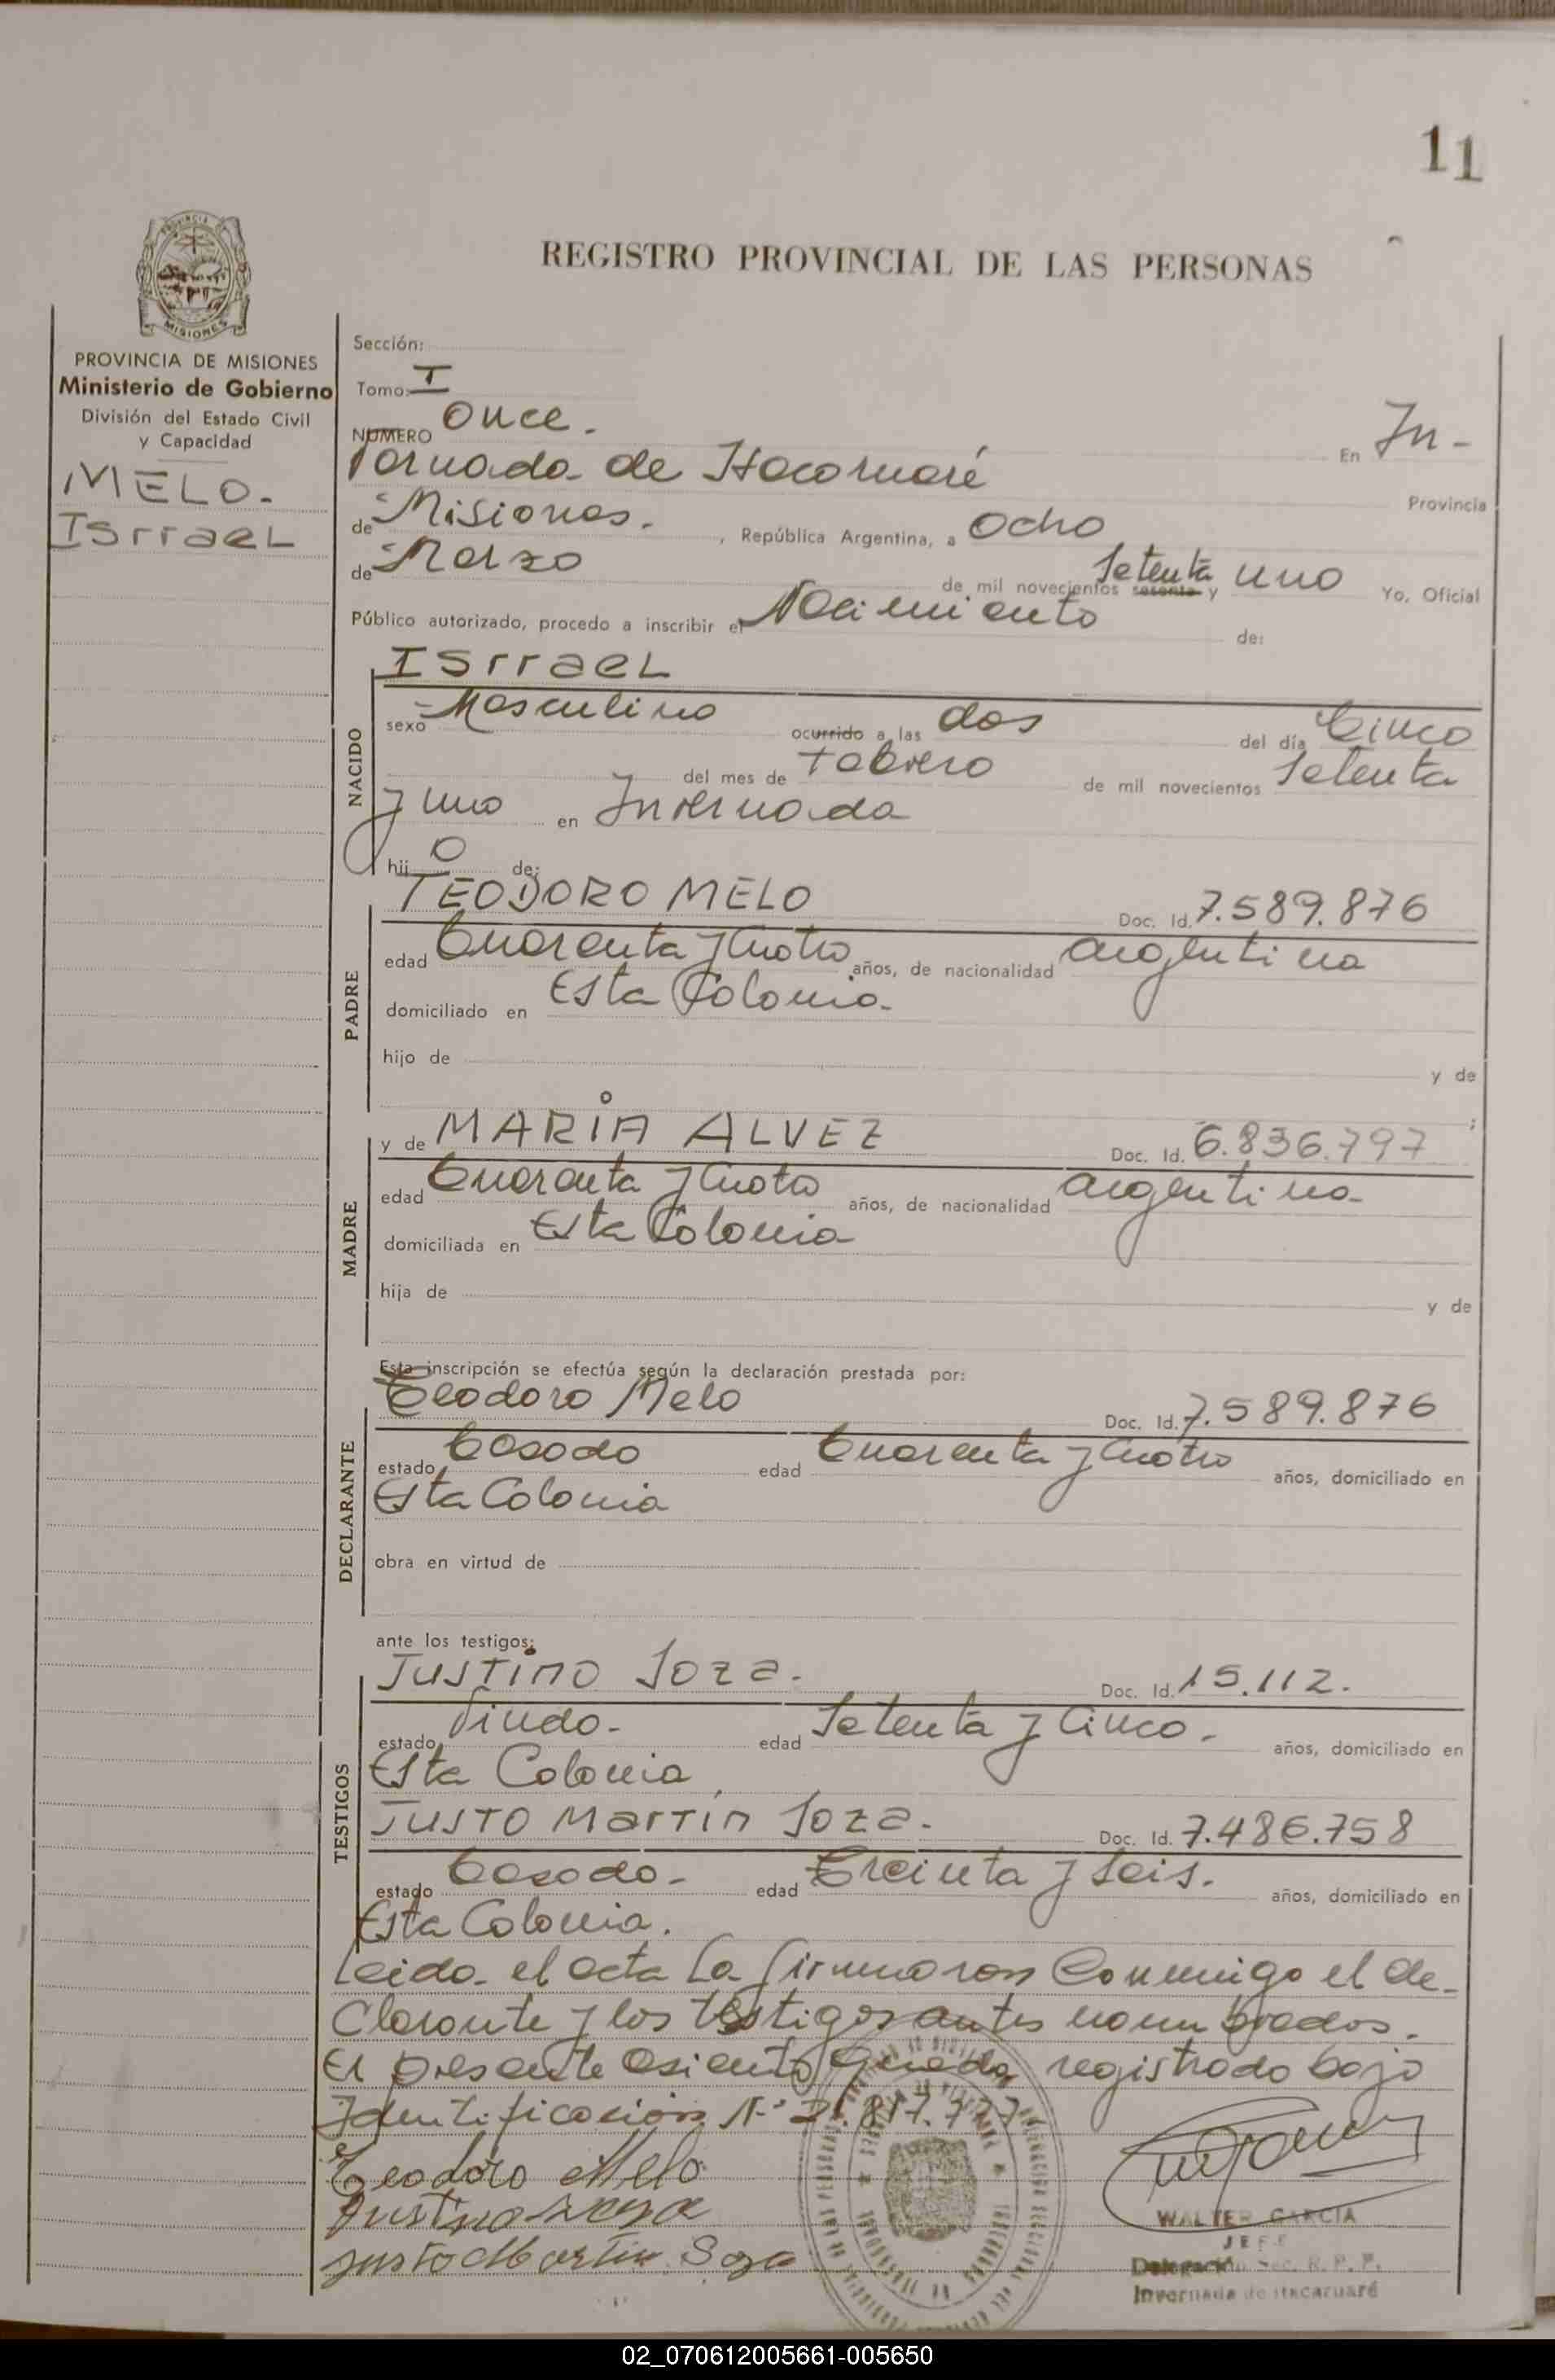 11
REGISTRO PROVINCIAL DE LAS PERSONAS
PROVINCIA DE MISIONES
Ministerio de Gobierno
División del Estado Civil
y Capacidad
MELO.
ISrraeL
Sección:
Tomo: I
NUMERO Once. En In-
vernada de Itacaruaré Provincia
de Misiones. , República Argentina, a Ocho
de Marzo de mil novecientos sesenta y Setenta uno Yo, Oficial
Público autorizado, procedo a inscribir el Nacimiento de:
NACIDO
ISrraeL
sexo Masculino ocurrido a las dos del día Cinco
del mes de Febrero de mil novecientos Setenta
y uno en Invernada
hij o de:
PADRE
TEODORO MELO Doc. Id. 7.589.876
edad Cuarenta y Cuatro años, de nacionalidad argentina
domiciliado en Esta Colonia.
hijo de
y de
MADRE
y de MARIA ALVEZ Doc. Id. 6.836.797
edad Cuarenta y Cuatro años, de nacionalidad argentina
domiciliada en Esta Colonia
hija de
y de
Esta inscripción se efectúa según la declaración prestada por:
DECLARANTE
Teodoro Melo Doc. Id. 7.589.876
estado Casado edad Cuarenta y Cuatro años, domiciliado en
Esta Colonia
obra en virtud de
ante los testigos:
TESTIGOS
JUSTINO Soza. Doc. Id. 15.112.
estado Viudo. edad Setenta y Cinco. años, domiciliado en
Esta Colonia
JUSTO Martín Soza. Doc. Id. 7.486.758
estado Casado. edad Treinta y Seis. años, domiciliado en
Esta Colonia.
Leida el acta La firmaron Conmigo el de-
clarante y los testigos antes nombrados.
El presente asiento queda registrado bajo
Identificacion N°
Teodoro Melo
Justino Soza
Justo Martin Soza
WALTER GARCIA
JEFE
Delegación Sec. R. P. P.
Invernada de Itacaruaré
02_070612005661-005650